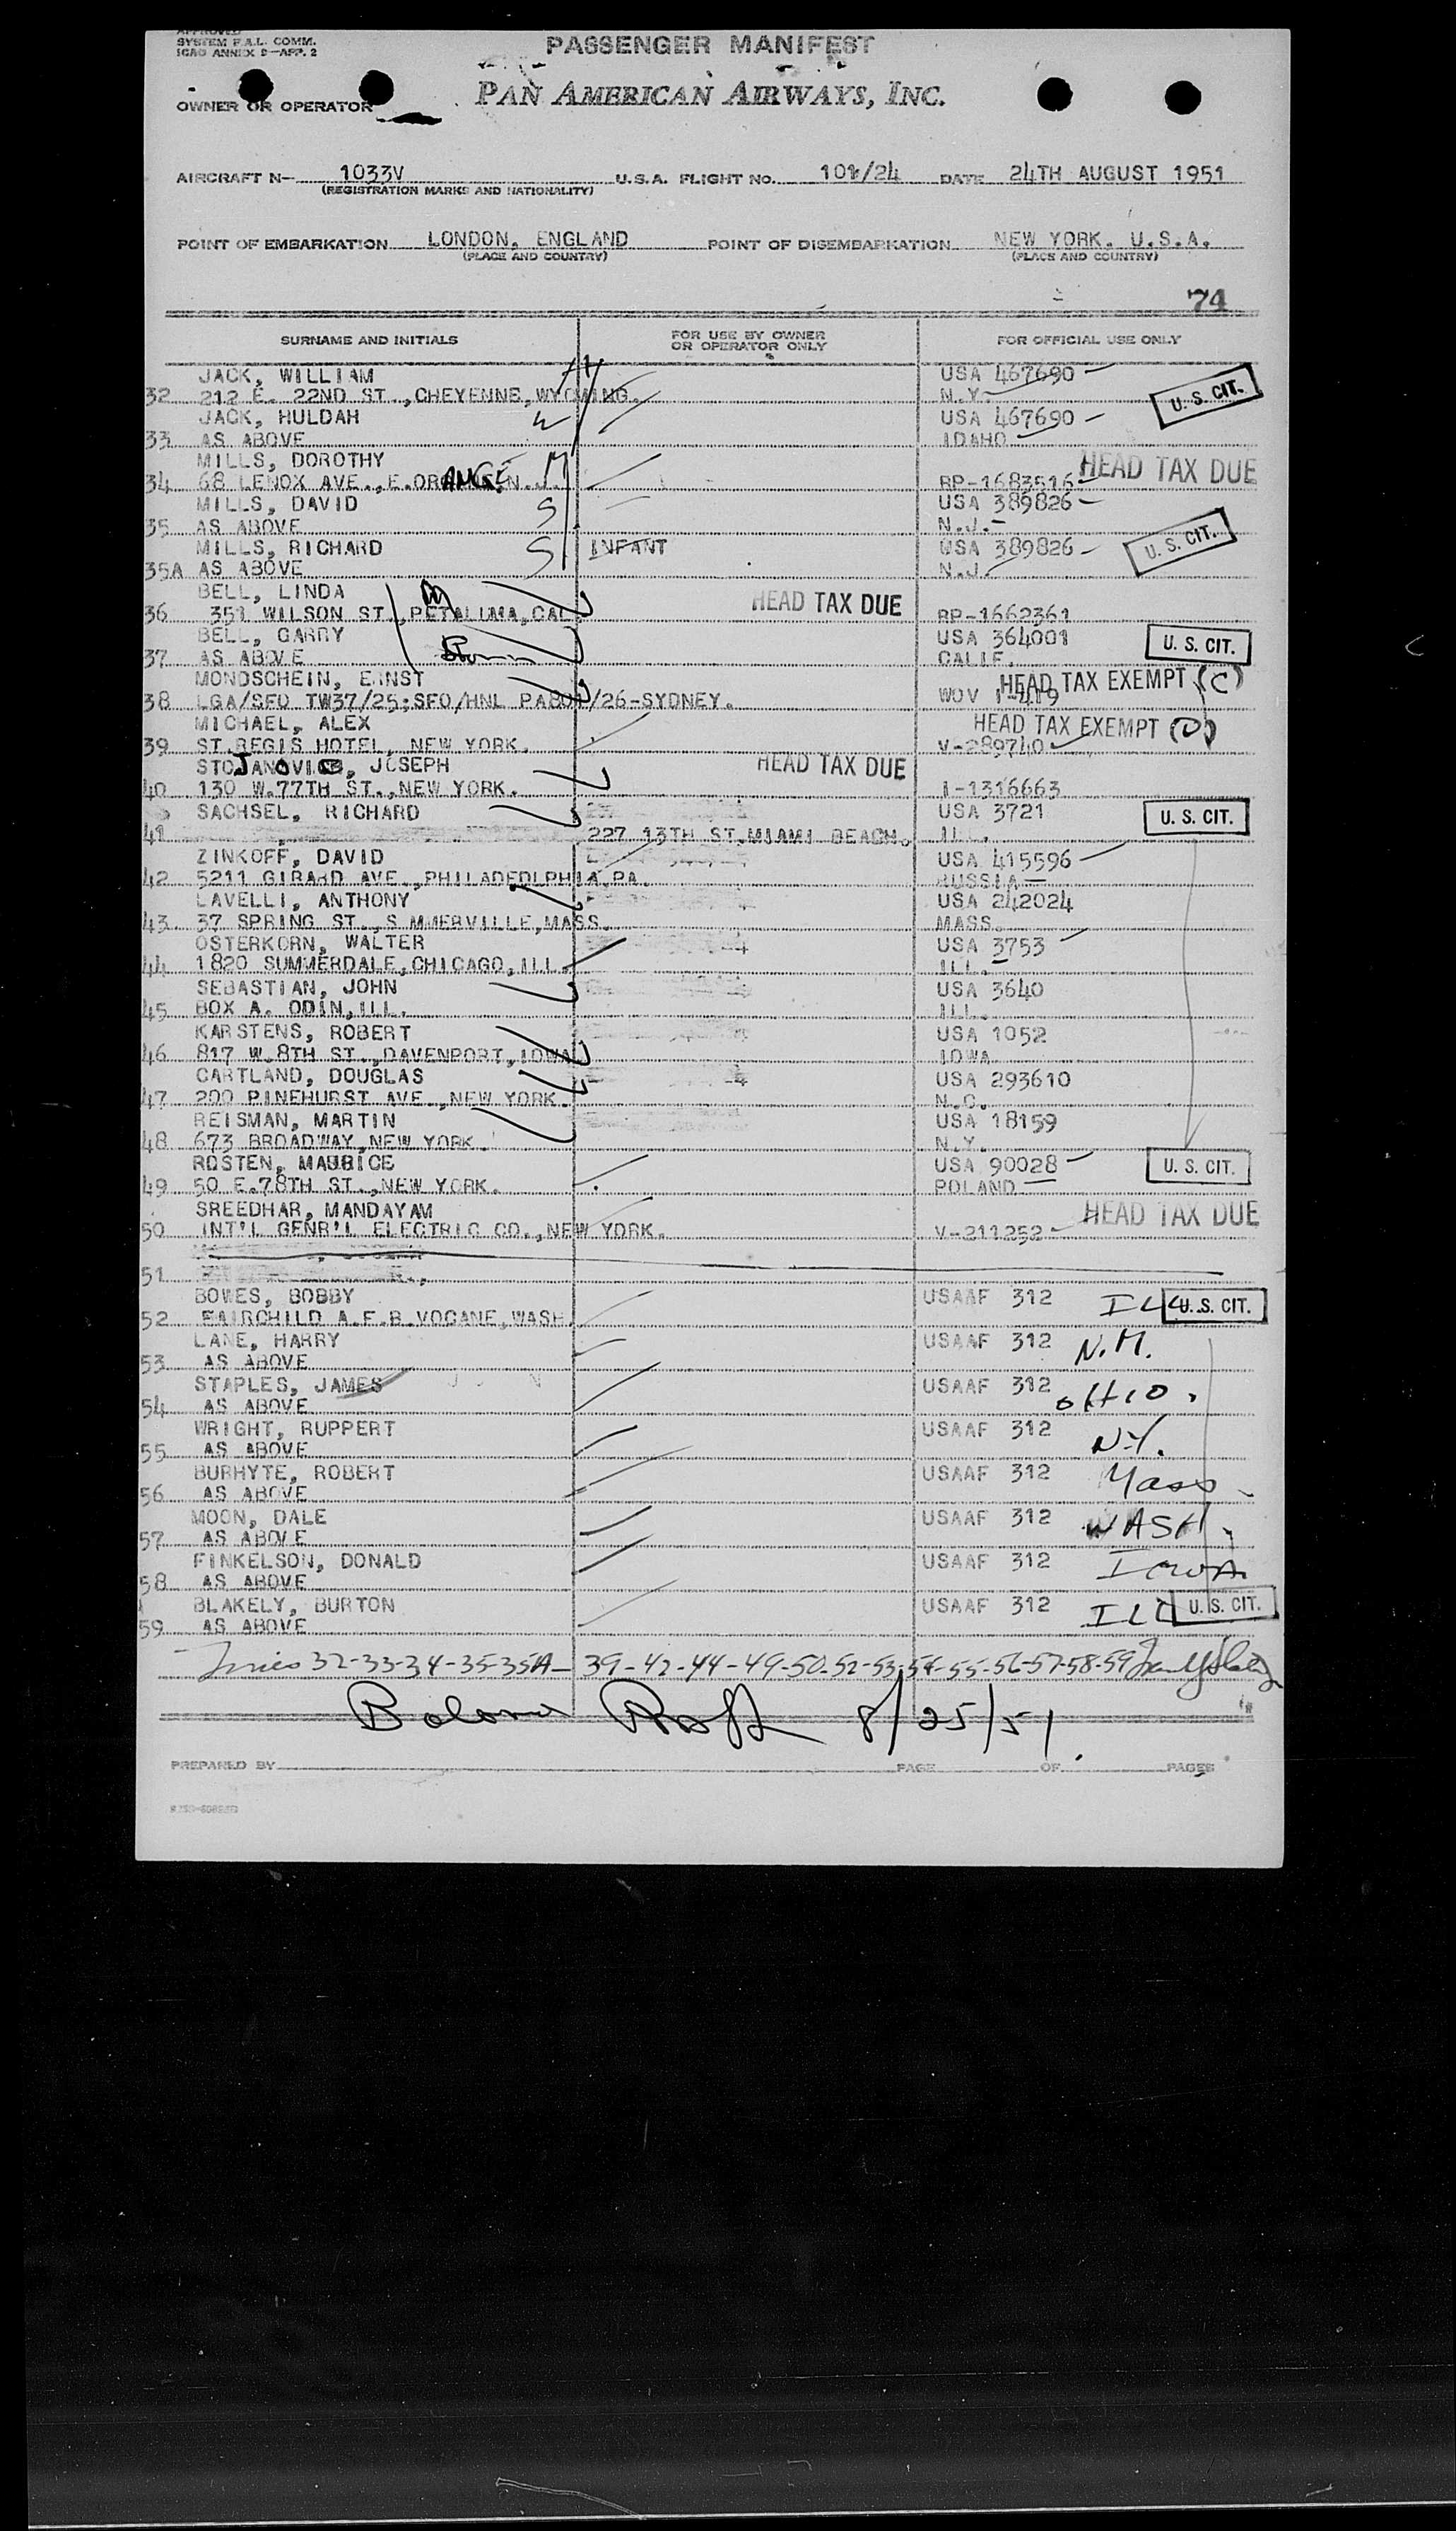 APPROVED
SYSTEM F.A.L. COMM.
ICAO ANNEX 9-APP. 2
PASSENGER MANIFEST
OWNER OR OPERATOR PAN AMERICAN AIRWAYS, INC.
AIRCRAFT N- 1033V U.S.A. FLIGHT NO. 101/24 DATE 24TH AUGUST 1951
(REGISTRATION MARKS AND NATIONALITY)
POINT OF EMBARKATION LONDON, ENGLAND POINT OF DISEMBARKATION NEW YORK, U.S.A.
(PLACE AND COUNTRY) (PLACE AND COUNTRY)
74
SURNAME AND INITIALS FOR USE BY OWNER OR OPERATOR ONLY FOR OFFICIAL USE ONLY
JACK, WILLIAM H USA 467690
32 212 E. 22ND ST.,CHEYENNE,WYOMING. N.Y. U. S. CIT.
JACK, HULDAH W USA 467690
33 AS ABOVE IDAHO
MILLS, DOROTHY M HEAD TAX DUE
34 68 LENOX AVE.,E.ORANGE,N.J. RP-1683516
MILLS, DAVID S USA 389826
35 AS ABOVE N.J.
MILLS, RICHARD S INFANT USA 389826 U. S. CIT.
35A AS ABOVE N.J.
BELL, LINDA M HEAD TAX DUE
36 351 WILSON ST.,PETALUMA,CAL. RP-1662361
BELL, GARRY USA 364001 U. S. CIT.
37 AS ABOVE CALIF.
MONDSCHEIN, ERNST HEAD TAX EXEMPT (C)
38 LGA/SFO TW37/25;SFO/HNL PA801/26-SYDNEY. WOV 1-419
MICHAEL, ALEX HEAD TAX EXEMPT (D)
39 ST.REGIS HOTEL, NEW YORK. V-289740
STOJANOVIC, JOSEPH HEAD TAX DUE
40 130 W.77TH ST.,NEW YORK. I-1316663
SACHSEL, RICHARD USA 3721 U. S. CIT.
41 227 13TH ST,MIAMI BEACH. ILL.
ZINKOFF, DAVID USA 415596
42 5211 GIRARD AVE.,PHILADEDLPHIA,PA. RUSSIA
LAVELLI, ANTHONY USA 242024
43 37 SPRING ST.,S MMERVILLE,MASS. MASS.
OSTERKORN, WALTER USA 3753
44 1820 SUMMERDALE,CHICAGO,ILL. ILL.
SEBASTIAN, JOHN USA 3640
45 BOX A. ODIN,ILL. ILL.
KARSTENS, ROBERT USA 1052
46 817 W.8TH ST.,DAVENPORT,IOWA IOWA
CARTLAND, DOUGLAS USA 293610
47 200 PINEHURST AVE.,NEW YORK. N.C.
REISMAN, MARTIN USA 18159
48 673 BROADWAY,NEW YORK. N.Y.
ROSTEN, MAURICE USA 90028 U. S. CIT.
49 50 E.78TH ST.,NEW YORK. POLAND
SREEDHAR, MANDAYAM HEAD TAX DUE
50 INT'L GENR'L ELECTRIC CO.,NEW YORK. V-211252
51
BOWES, BOBBY USAAF 312 ILL U. S. CIT.
52 FAIRCHILD A.F.B.VOGANE,WASH.
LANE, HARRY USAAF 312 N.M.
53 AS ABOVE
STAPLES, JAMES USAAF 312 OHIO.
54 AS ABOVE
WRIGHT, RUPPERT USAAF 312 N.Y.
55 AS ABOVE
BURHYTE, ROBERT USAAF 312 Mass
56 AS ABOVE
MOON, DALE USAAF 312 WASH.
57 AS ABOVE
FINKELSON, DONALD USAAF 312 IOWA
58 AS ABOVE
BLAKELY, BURTON USAAF 312 ILL U. S. CIT.
59 AS ABOVE
32-33-34-35-35A-39-42-44-49-50-52-53-54-55-56-57-58-59
8/25/51.
PREPARED BY PAGE OF PAGES